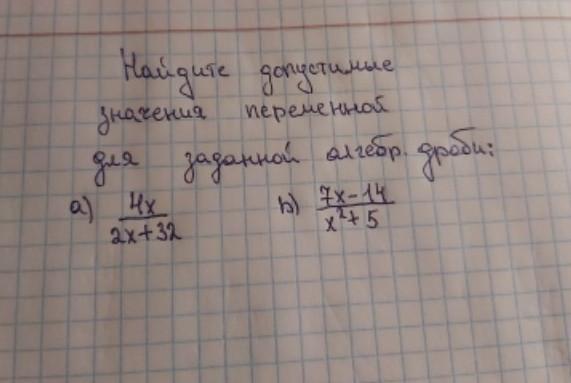 Найдите допустимые
значения переменной
для заданной алгебр. дроби:
а) 4x/2x+32 b) 7x-14/x²+5